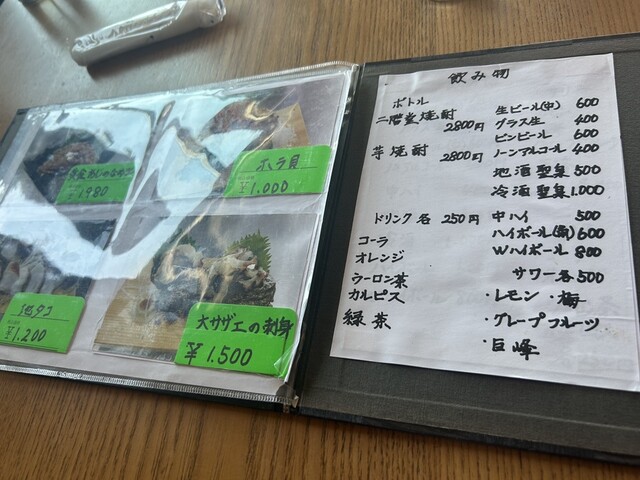 ¥980
ホラ貝
¥1.000
地タコ
¥1.200
大サザエの刺身
¥1.500
飲み物
ボトル
二階堂焼酎
2800円
芋焼酎 2800円
ドリンク各 250円
コーラ
オレンジ
ウーロン茶
カルピス
緑茶
生ビール(中) 600
グラス生 400
ビンビール 600
ノーンアルコール 400
地酒聖集 500
冷酒聖集 1.000
中ハイ 500
ハイボール(角) 600
Wハイボール 800
サワー各 500
・レモン ・梅
・グレープフルーツ
・巨峰